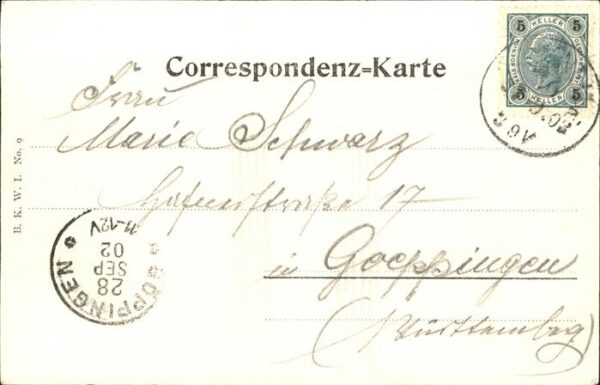 Correspondenz-Karte
5 HELLER 5
5 HELLER 5
9V
Frau
Marie Schwarz
17
in Goeppingen
(Württemberg)
B. K. W. I. No. 9
GÖPPINGEN
28
SEP
02
11-12V